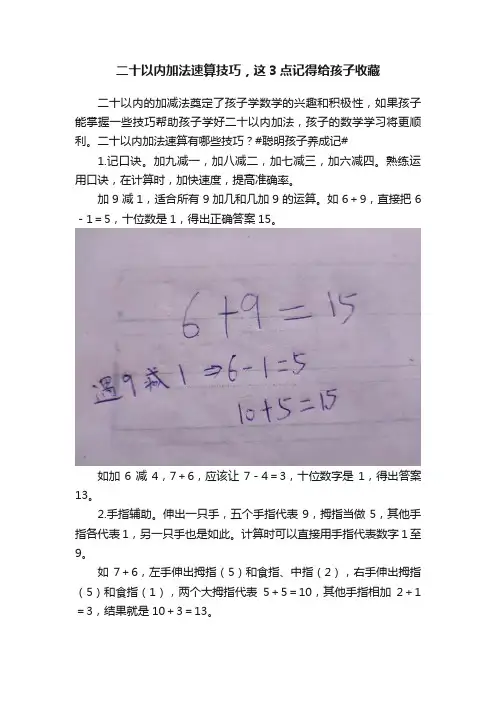 二十以内加法速算技巧，这3点记得给孩子收藏
二十以内的加减法奠定了孩子学数学的兴趣和积极性，如果孩子
能掌握一些技巧帮助孩子学好二十以内加法，孩子的数学学习将更顺
利。二十以内加法速算有哪些技巧？#聪明孩子养成记#
1.记口诀。加九减一，加八减二，加七减三，加六减四。熟练运
用口诀，在计算时，加快速度，提高准确率。
加9减1，适合所有9加几和几加9的运算。如6+9，直接把6
-1=5，十位数是1，得出正确答案15。
6+9=15
遇9减1⇒6-1=5
10+5=15
如加6减4，7+6，应该让7-4=3，十位数字是1，得出答案
13。
2.手指辅助。伸出一只手，五个手指代表9，拇指当做5，其他手
指各代表1，另一只手也是如此。计算时可以直接用手指代表数字1至
9。
如7+6，左手伸出拇指（5）和食指、中指（2），右手伸出拇指
（5）和食指（1），两个大拇指代表5+5=10，其他手指相加2+1
=3，结果就是10+3=13。